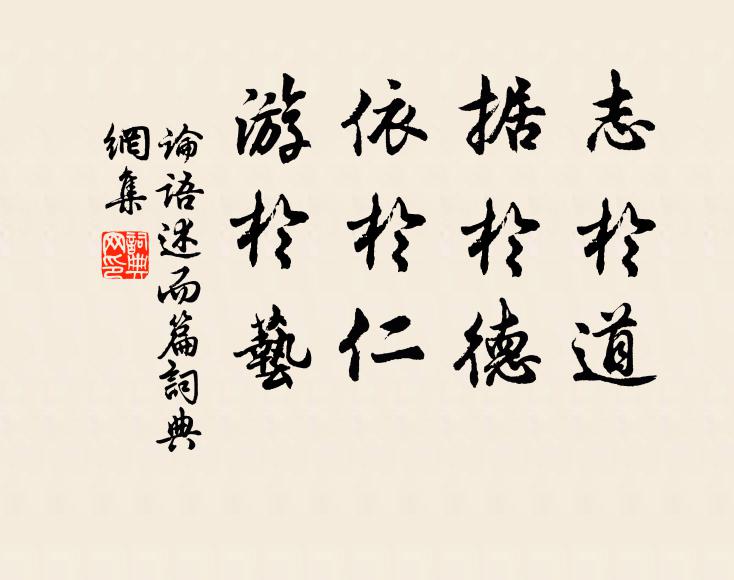 志於道
据於德
依於仁
游於藝
論語述而篇詞典
網集
詞典
网印